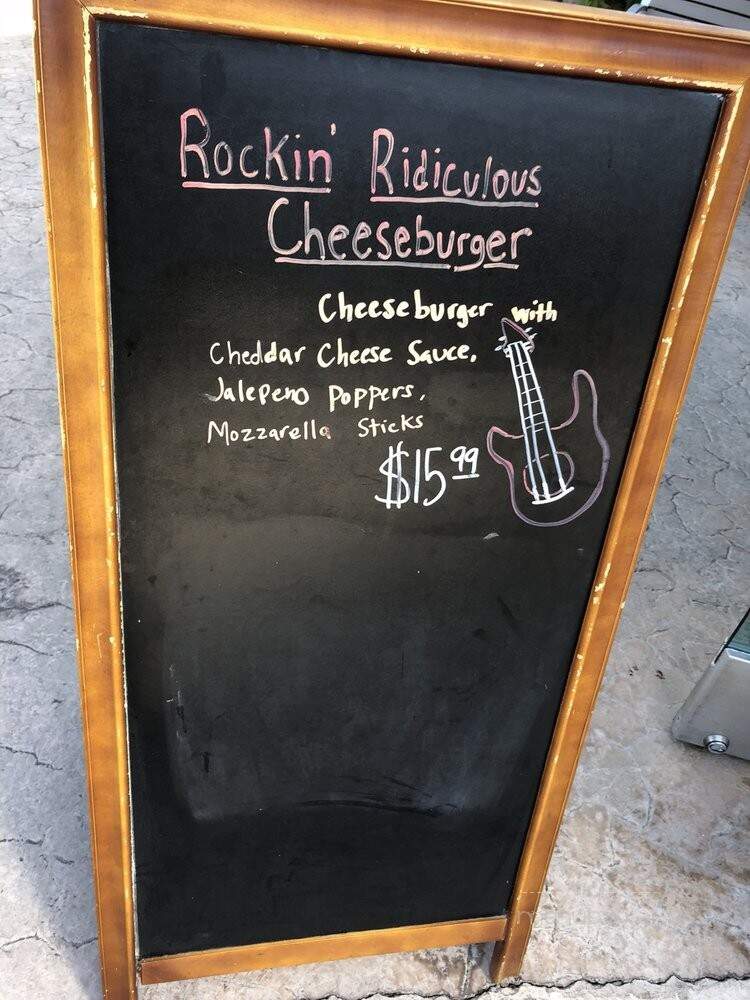 Rockin' Ridiculous
Cheeseburger
Cheeseburger with
Cheddar Cheese Sauce,
Jalepeno Poppers,
Mozzarella Sticks
$15.99